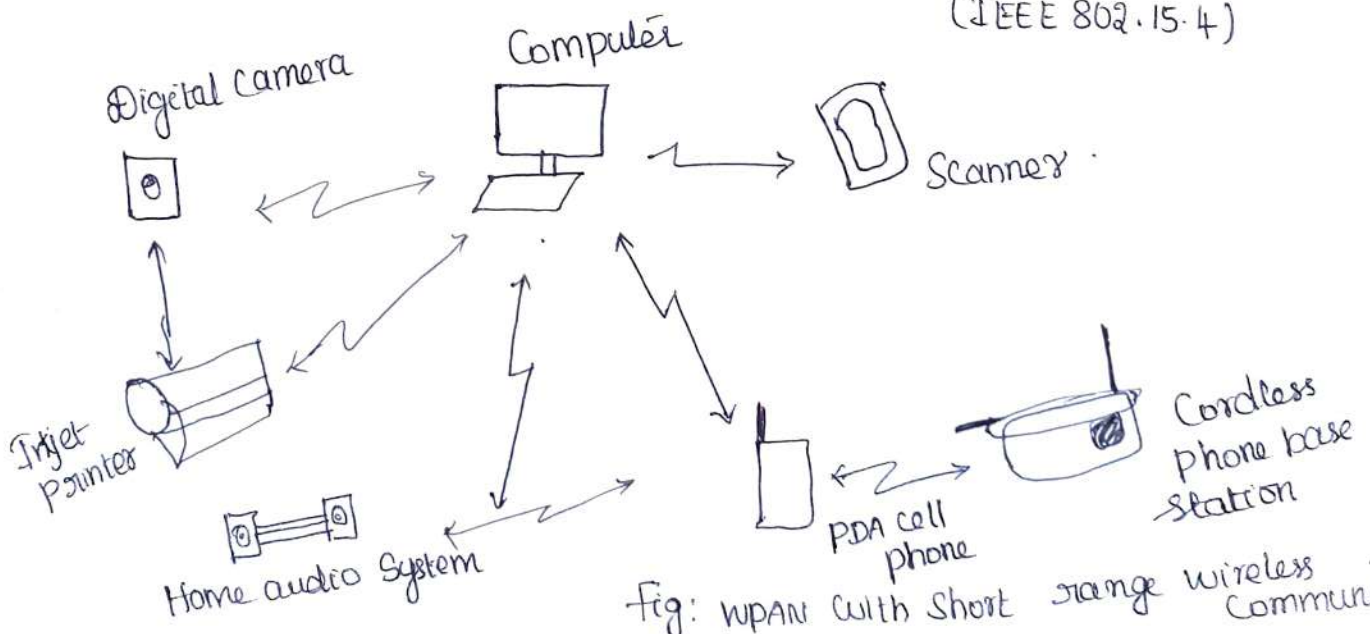 (IEEE 802.15.4)
Computer
Digital Camera
Scanner.
Inkjet
printer
Home audio System
PDA cell
phone
Cordless
phone base
station
Fig: WPAN with Short range wireless